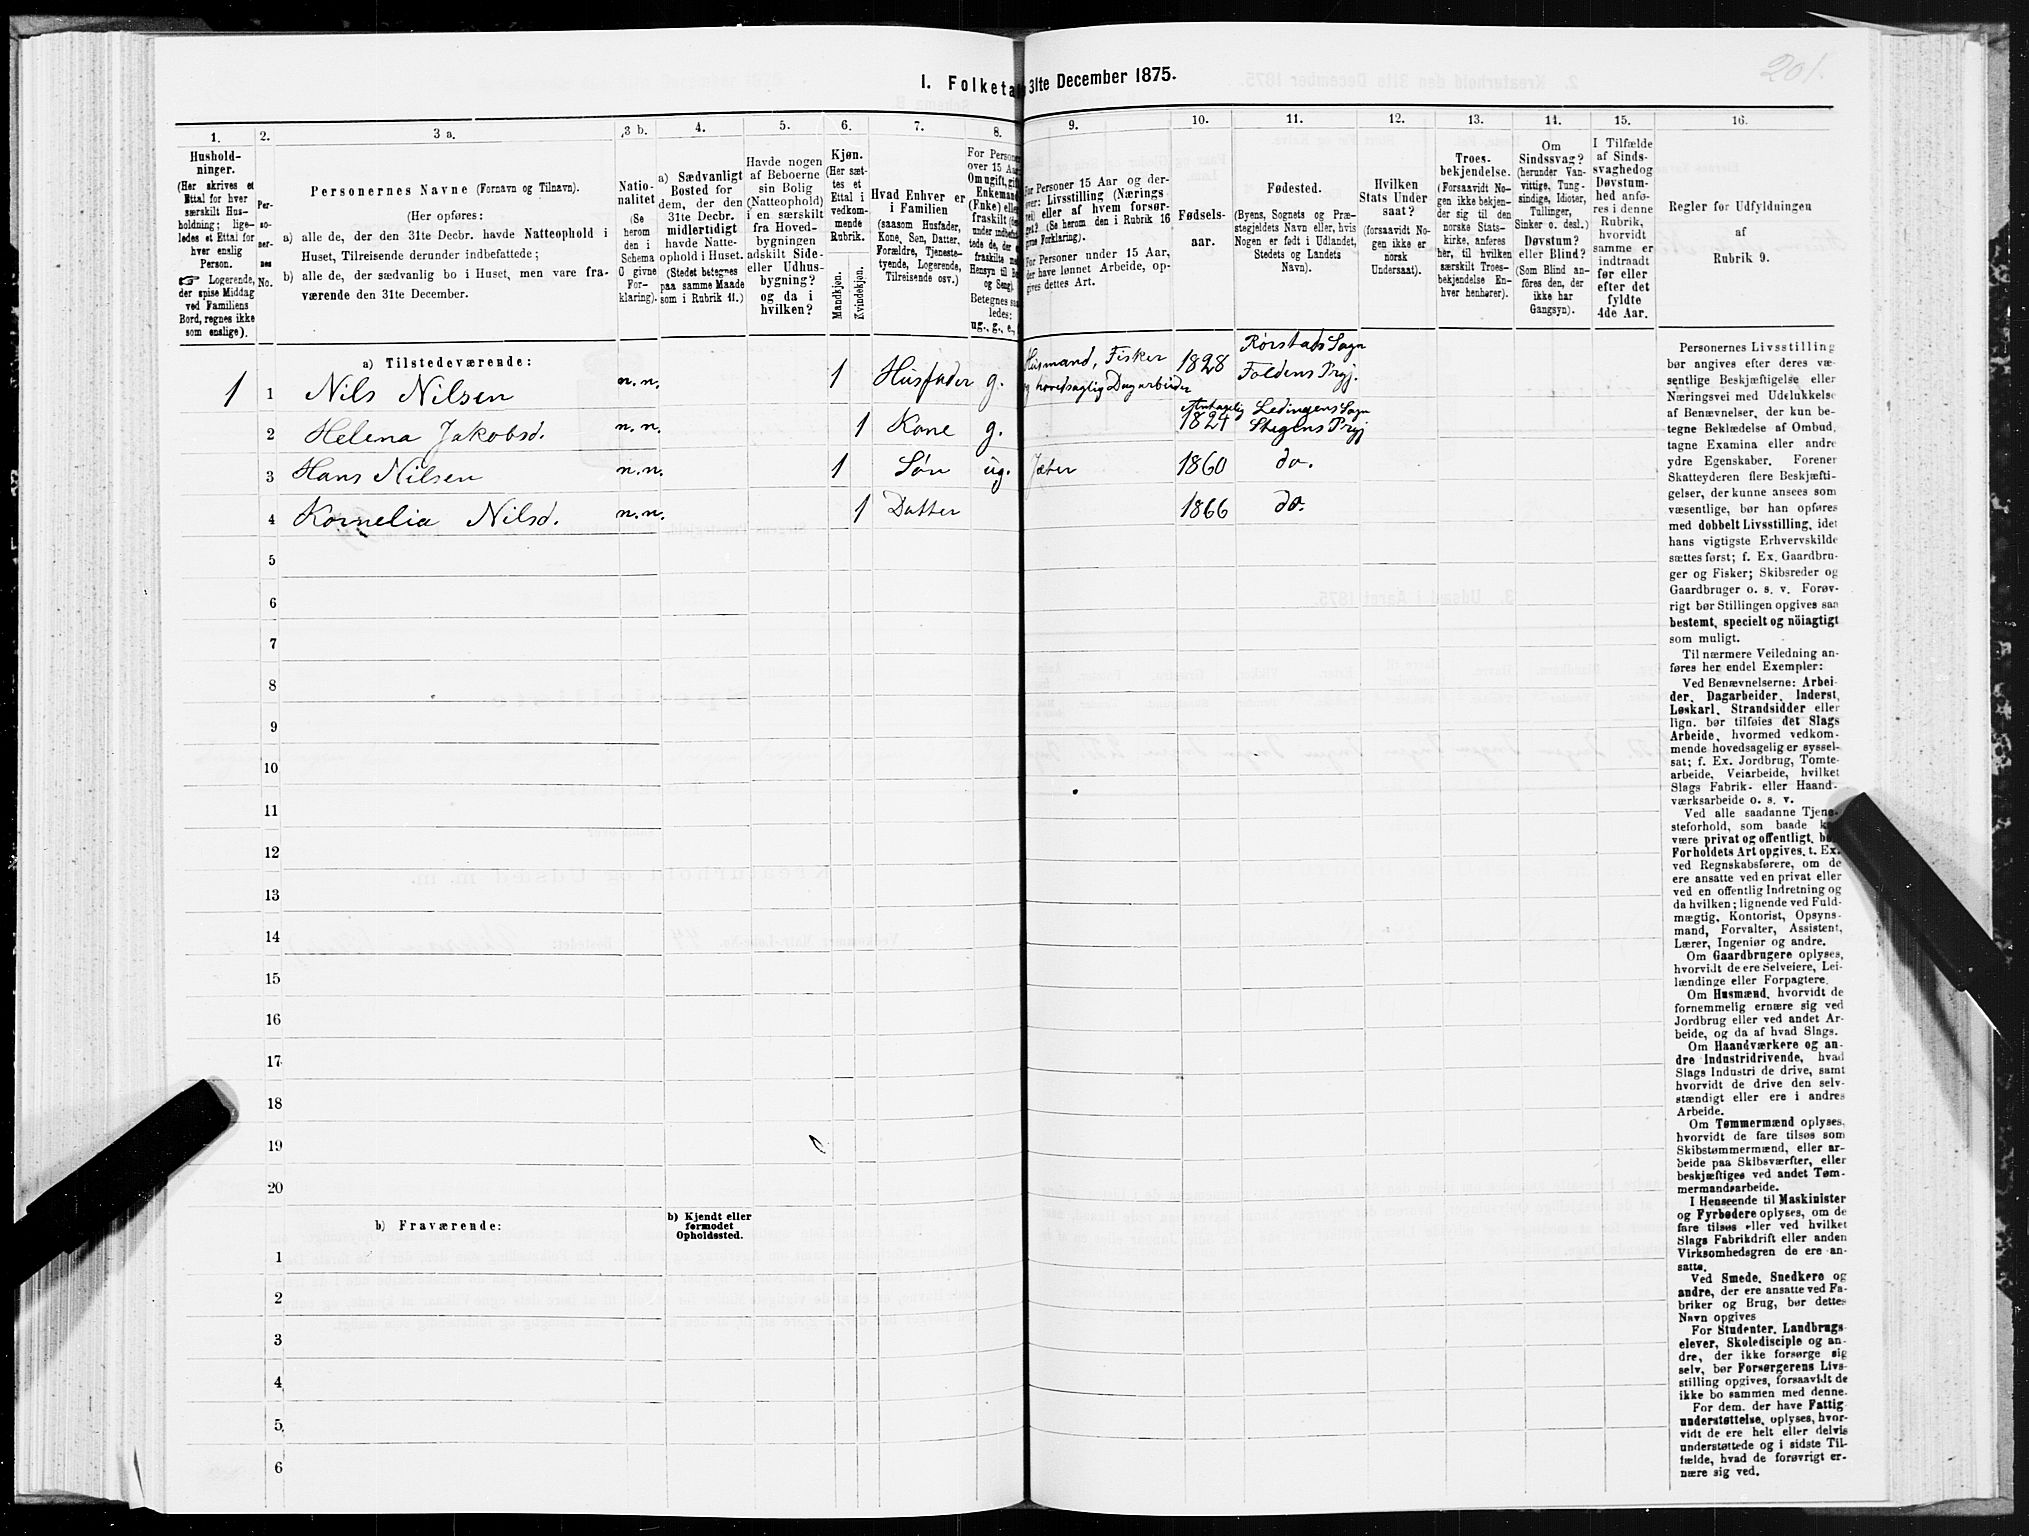 201.
I. Folketa 31te December 1875.
1. 2. 3 a. 3 b. 4. 5. 6. 7. 8. 9. 10. 11. 12. 13. 14. 15. 16.
Hushold-
ninger.
(Her skrives et
Ettal for hver
særskilt Hus-
holdning; lige-
ledes et Ettal for
hver enslig
Person.
☞ Logerende,
der spise Middag
ved Familiens
Bord, regnes ikke
som enslige).
Per-
so-
ner-
nes
No.
Personernes Navne (Fornavn og Tilnavn).
(Her opføres:
a) alle de, der den 31te Decbr. havde Natteophold i
Huset, Tilreisende derunder indbefattede;
b) alle de, der sædvanlig bo i Huset, men vare fra-
værende den 31te December.
Natio-
nalitet
(Se
herom
den i
Schema
C givne
For-
klaring).
a) Sædvanligt
Bosted for
dem, der den
31te Decbr.
midlertidigt
havde Natte-
ophold i Huset.
(Stedet betegnes
paa samme Maade
som i Rubrik 11.)
Havde nogen
af Beboerne
sin Bolig
(Natteophold)
i en særskilt
fra Hoved-
bygningen
adskilt Side-
eller Udhus-
bygning?
og da i
hvilken?
Kjøn.
(Her sæt-
tes et
Ettal i
vedkom-
mende
Rubrik.
Mandkjøn.
Kvindekjøn.
Hvad Enhver er
i Familien
(saasom Husfader,
Kone, Søn, Datter,
Forældre, Tjeneste-
tyende, Logerende,
Tilreisende osv.)
For Persone
over 15 Aar
Om ugift, gift,
Enkemand
(Enke) elle
fraskilt
under indbefat
tede de, der
fraskilte m
Hensyn til Bo
og Seng).
Betegnes saa
ledes:
ug., g., e.,
For Personer 15 Aar og der-
over: Livsstilling (Nærings
vei) eller af hvem forsør-
get? (Se herom den i Rubrik 16
givne Forklaring).
For Personer under 15 Aar,
der have lønnet Arbeide, op-
gives dettes Art.
Fødsels-
aar.
Fødested.
(Byens, Sognets og Præ-
stegjeldets Navn eller, hvis
Nogen er født i Udlandet,
Stedets og Landets
Navn).
Hvilken
Stats Under
saat?
(hvis No-
gen ikke er
norsk
Undersaat).
Troes-
bekjendelse.
(Forsaavidt No-
gen ikke bekjen-
der sig til den
norske Stats-
kirke, anføres
her, til hvilken
særskilt Troes-
bekjendelse En-
hver henhører).
Om
Sindssvag?
(herunder Van-
vittige, Tung-
sindige, Idioter,
Tullinger,
Sinker o. desl.)
Døvstum?
eller Blind?
(Som Blind an-
føres den, der
ikke har
Gangsyn).
I Tilfælde
af Sinds-
svaghed og
Døvstum-
hed anfø-
res i denne
Rubrik,
hvorvidt
samme er
indtraadt
før eller
efter det
fyldte
4de Aar.
Regler for Udfyldningen
af
Rubrik 9.
a) Tilstedeværende:
1 1 Nils Nilsen n.n. 1 Husfader g. Husmand, Fisker
og hovedsaglig Dagarbeider 1828 Rørstads Sogn
Foldens Prgj.
2 Helena Jakobsd. n.n. 1 Kone g. Antagelig
1824 Lødingens Sogn
Stegens Prgj
3 Hans Nilsen n.n. 1 Søn ug. Jæter 1860 do.
4 Kornelia Nilsd. n.n. 1 Datter 1866 do.
5
6
7
8
9
10
11
12
13
14
15
16
17
18
19
20
b) Fraværende:
b) Kjendt eller
formodet
Opholdssted.
1
2
3
4
5
6
Personernes Livsstilling
bør angives efter deres væ-
sentlige Beskjæftigelse eller
Næringsvei med Udelukkelse
af Benævnelser, der kun be-
tegne Beklædelse af Ombud,
tagne Examina eller andre
ydre Egenskaber. Forener
Skatteyderen flere Beskjæfti-
gelser, der kunne ansees som
væsentlige, bør han opføres
med dobbelt Livsstilling, idet
hans vigtigste Erhvervskilde
sættes først; f. Ex. Gaardbru-
ger og Fisker; Skibsreder og
Gaardbruger o. s. v. Forøv-
rigt bør Stillingen opgives saa
bestemt, specielt og nöiagtigt
som muligt.
Til nærmere Veiledning an-
føres her endel Exempler:
Ved Benævnelserne: Arbei-
der, Dagarbeider, Inderst,
Løskarl, Strandsidder eller
lign. bør tilføies det Slags
Arbeide, hvormed vedkom-
mende hovedsagelig er syssel-
sat; f. Ex. Jordbrug, Tomte-
arbeide, Veiarbeide, hvilket
Slags Fabrik- eller Haand-
værksarbeide o. s. v.
Ved alle saadanne Tjene-
steforhold, som baade k
være privat og offentligt, bø
Forholdets Art opgives, t. Ex.
ved Regnskabsførere, om de
ere ansatte ved en privat eller
ved en offentlig Indretning og
da hvilken; lignende ved Fuld-
mægtig, Kontorist, Opsyns-
mand, Forvalter, Assistent,
Lærer, Ingeniør og andre.
Om Gaardbrugere oplyses,
hvorvidt de ere Selveiere, Lei-
lændinge eller Forpagtere.
Om Husmænd, hvorvidt de
fornemmelig ernære sig ved
Jordbrug eller ved andet Ar-
beide, og da af hvad Slags.
Om Haandværkere og an-
dre Industridrivende, hvad
Slags Industri de drive, samt
hvorvidt de drive den selv-
stændigt eller ere i andres
Arbeide.
Om Tømmermænd oplyses,
hvorvidt de fare tilsøs som
Skibstømmermænd, eller ar-
beide paa Skibsværfter, eller
beskjæftiges ved andet Tøm-
mermandsarbeide.
I Henseende til Maskinister
og Fyrbødere oplyses, om de
fare tilsøs eller ved hvilket
Slags Fabrikdrift eller anden
Virksomhedsgren de ere an-
satte.
Ved Smede, Snedkere og
andre, der ere ansatte ved Fa-
briker og Brug, bør dettes
Navn opgives
For Studenter, Landbrugs
elever, Skoledisciple og an-
dre, der ikke forsørge sig
selv, bør Forsørgerens Livs-
stilling opgives, forsaavidt de
ikke bo sammen med denne.
For dem, der have Fattig
understøttelse, oplyses, hvor-
vidt de ere helt eller delvis
understøttede og i sidste Til-
fælde, hvad de forøvrigt er-
nære sig ved.